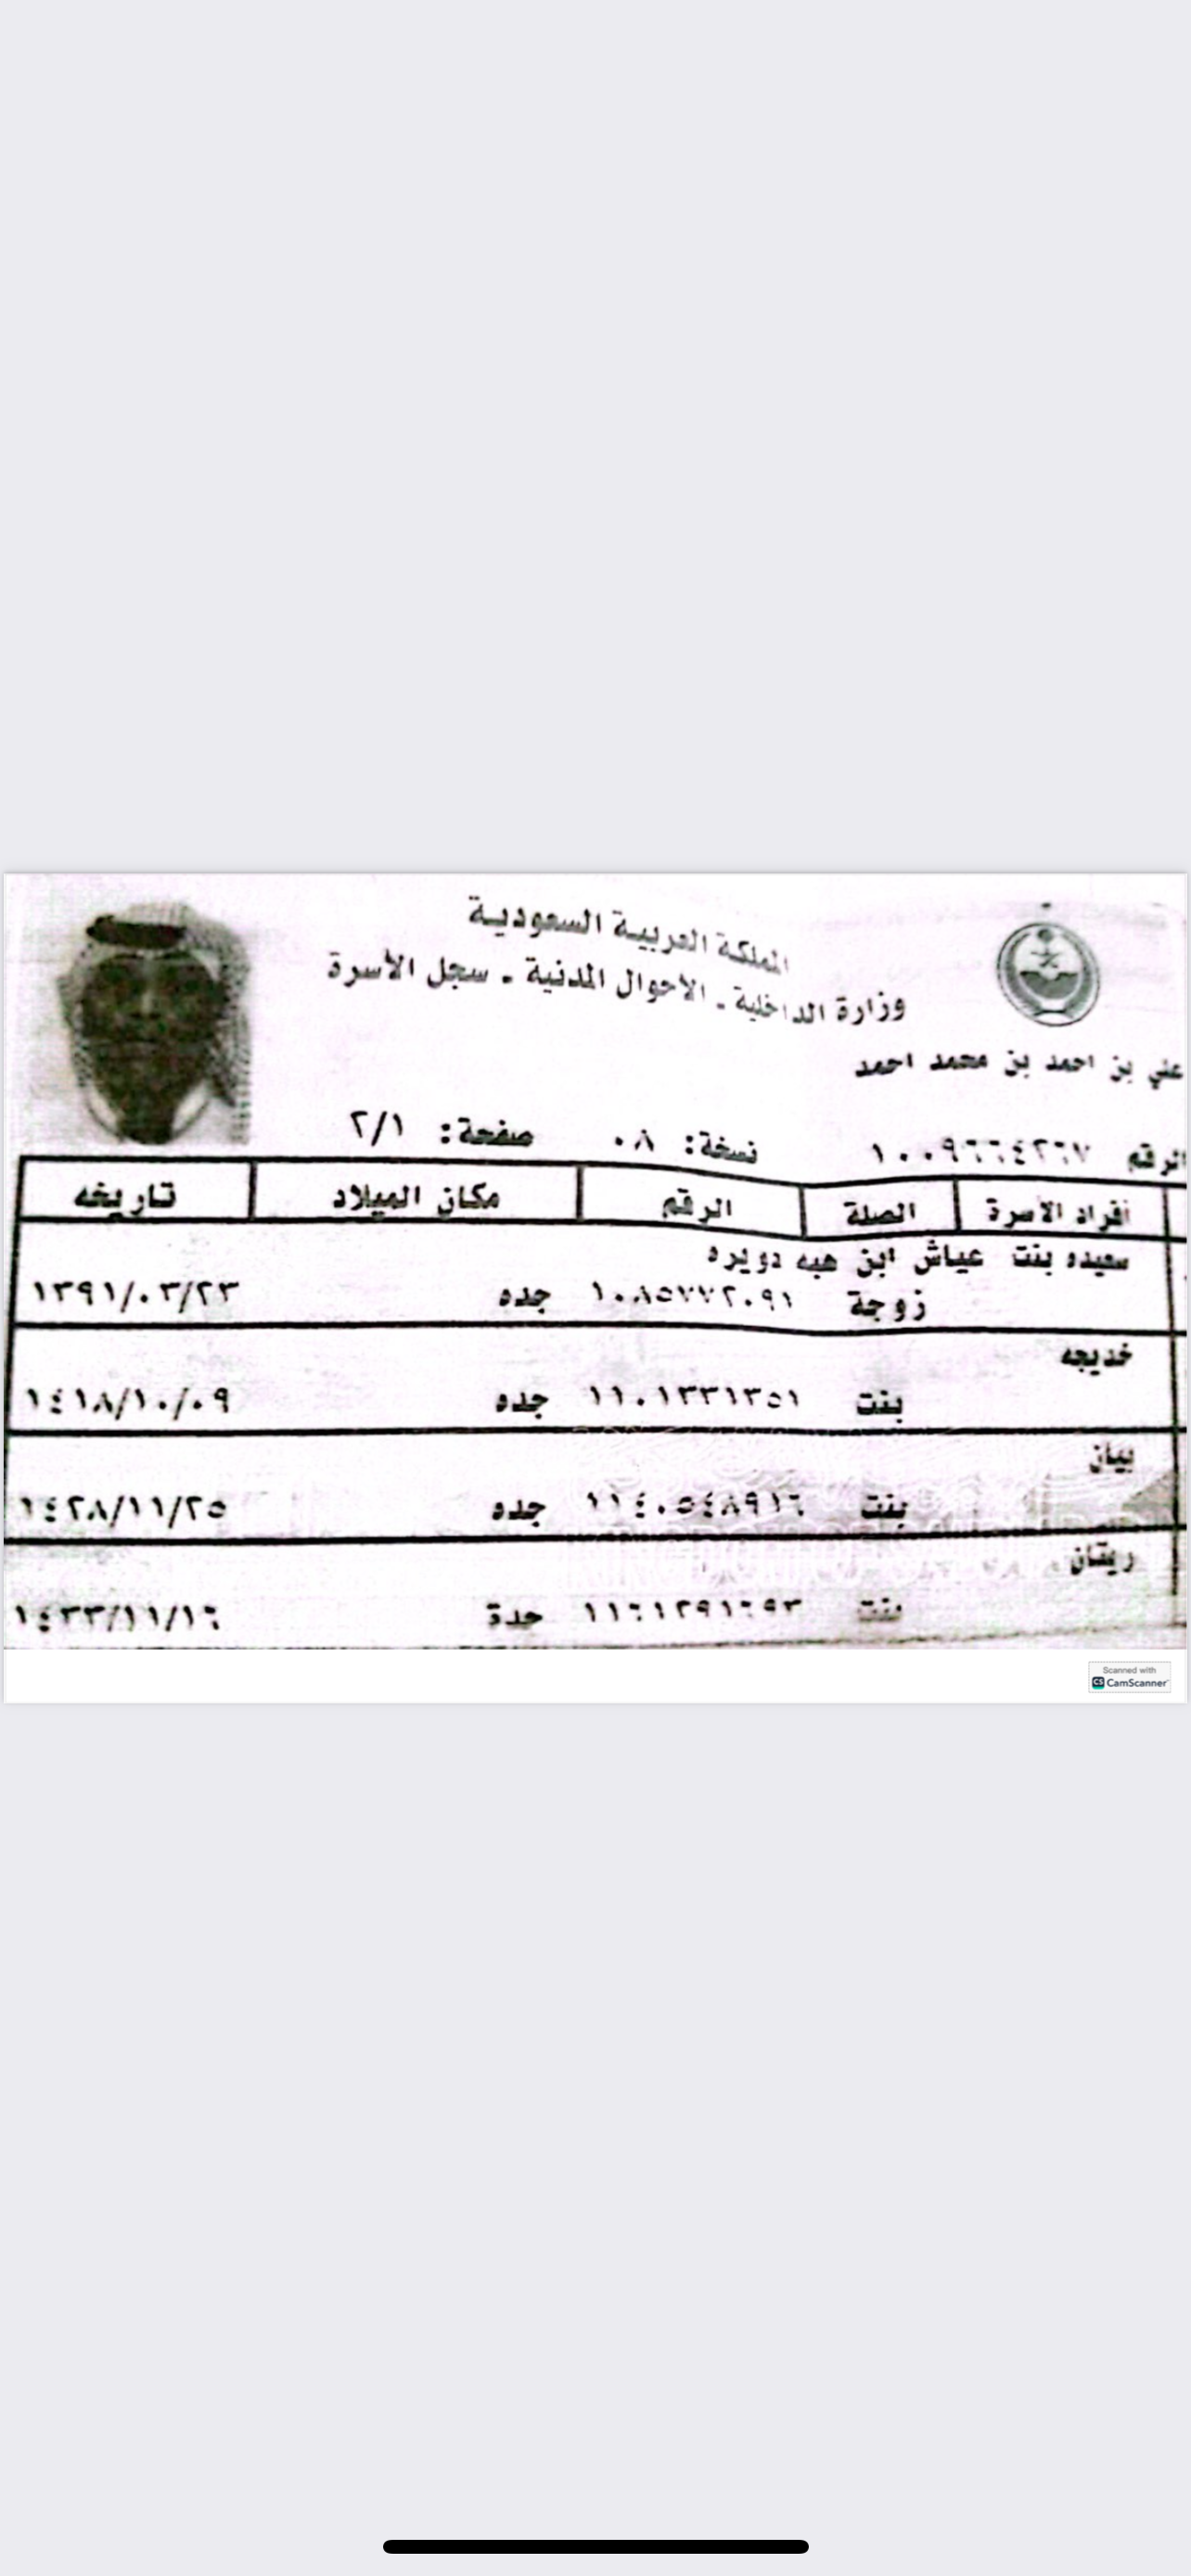 المملكة العربية السعودية
وزارة الداخلية - الأحوال المدنية - سجل الأسرة
علي بن احمد بن محمد احمد
الرقم ١٠٠٩٦٦٤٢٦٧ نسخة: ٠٨ صفحة: ٢/١
أفراد الأسرة الصلة الرقم مكان الميلاد تاريخه
سعيده بنت عياش ابن هبه دويره
زوجة ١٠٨٥٧٧٢٠٩١ جده ١٣٩١/٠٣/٢٣
خديجه
بنت ١١٠١٣٣١٣٥١ جده ١٤١٨/١٠/٠٩
بيان
بنت ١١٤٠٥٤٨٩١٦ جده ١٤٢٨/١١/٢٥
ريتان
بنت جدة ١٤٣٣/١١/١٦
Scanned with
CS CamScanner